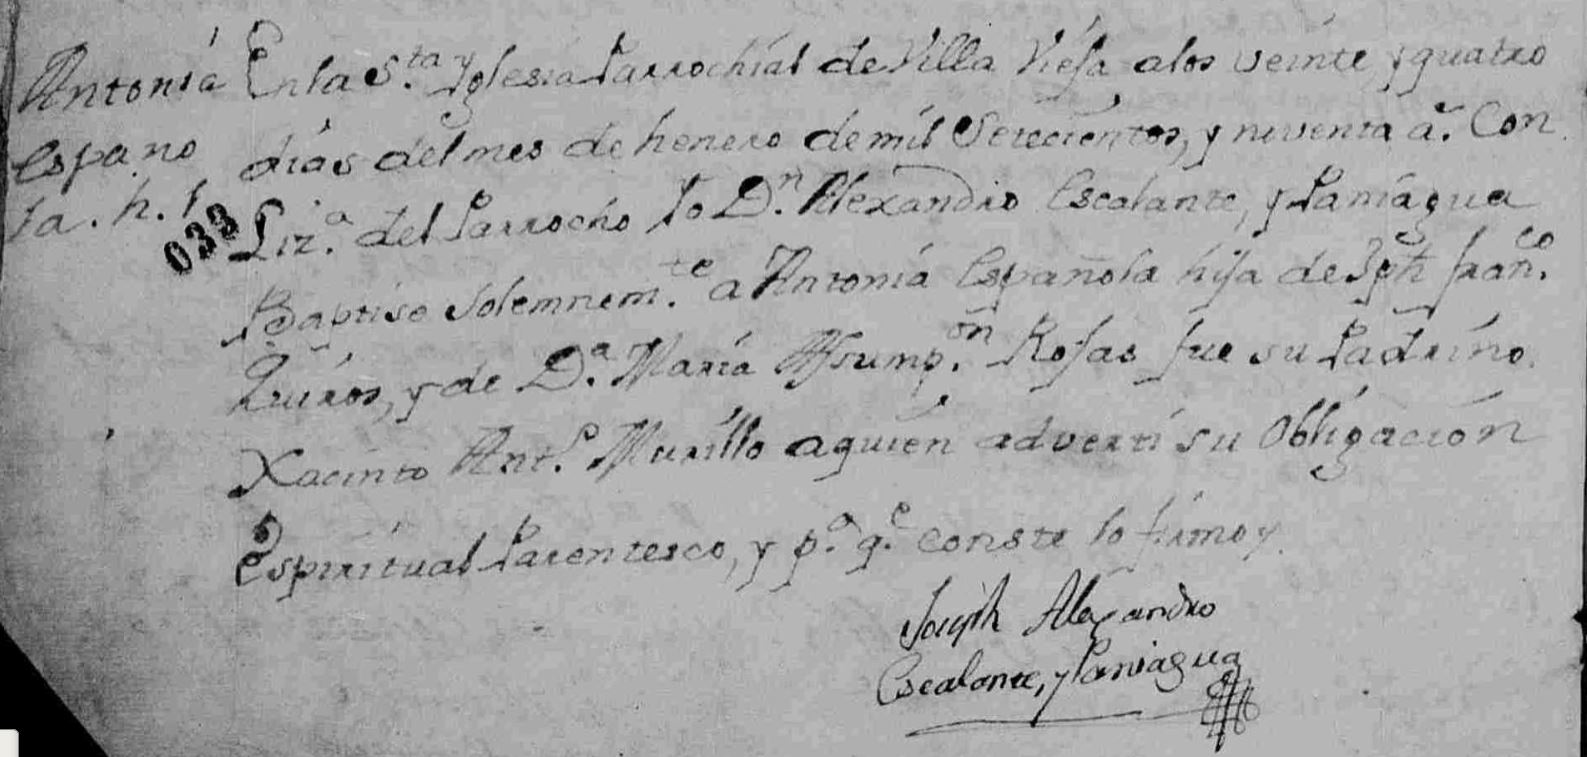 Antonia
Espano
la. h. l
033
En la S.ta Yglesia Parrochial de Villa Viefa alos veinte y quatro
dias del mes de henero de mil Setecientos, y noventa a.s Con
Liz.a del Parrocho Yo D.n Alexandro Escalante, y Paniagua
Baptise Solemnem.te a Antonia Española hija de Jph fran.co
Quiros, y de D.a Maria Assump.on Rofas fue su Padrino
Xacinto Ant.o Murillo aquien adverti su Obligacion
Espiritual Parentesco, y p.a q.e conste lo firmo y
Joseph Alexandro
Escalante, y Paniagua